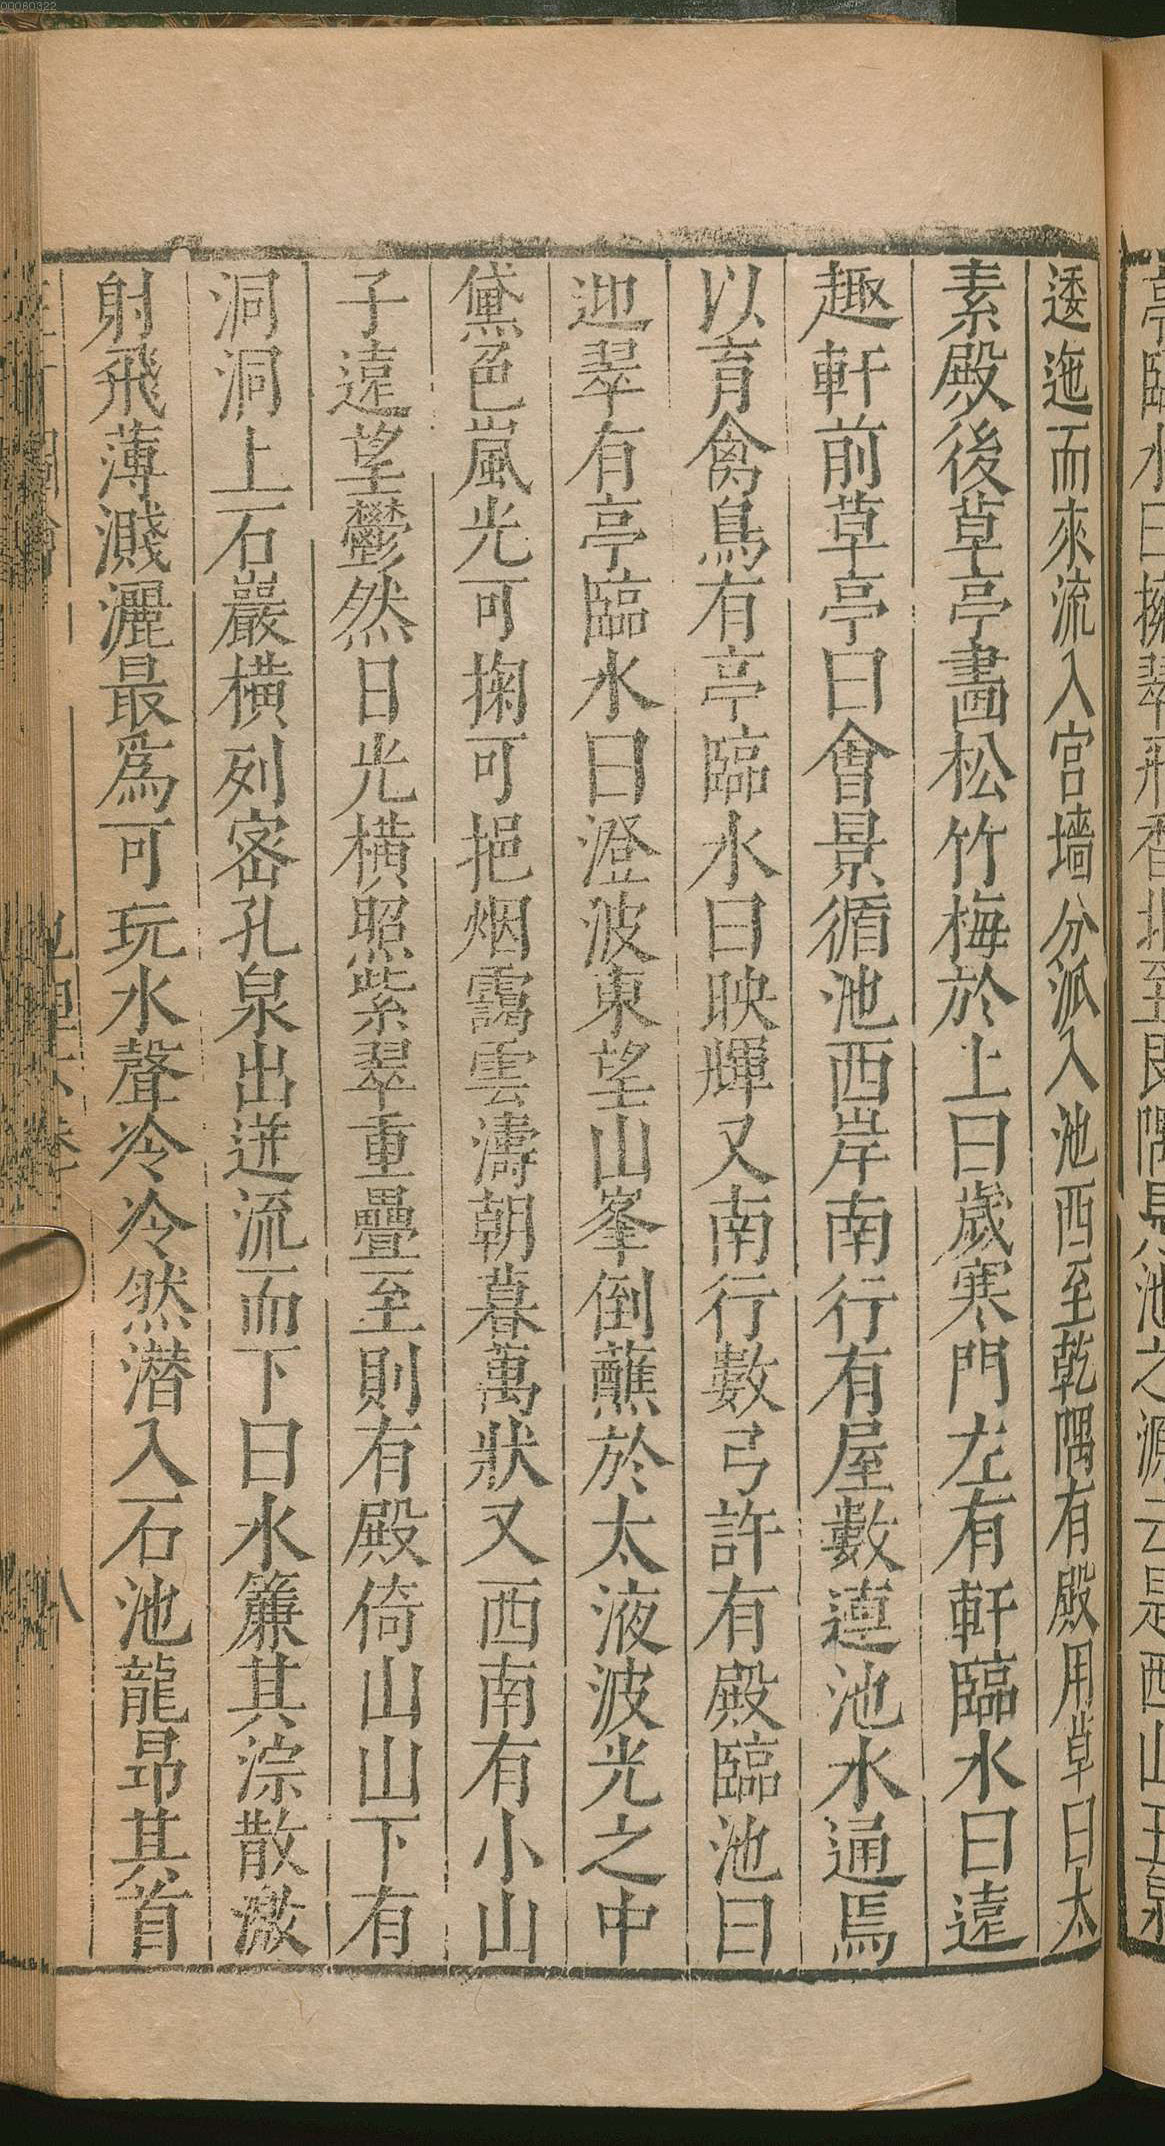 00080322
亭臨水曰擁翠飛香北至艮隅見池之源云是西山玉泉
逶迤而來流入宮墻分派入池西至乾隅有殿用草曰太
素殿後草亭畫松竹梅於上曰歲寒門左有軒臨水曰遠
趣軒前草亭曰會景循池西岸南行有屋數連池水通焉
以育禽鳥有亭臨水曰映輝又南行數弓許有殿臨池曰
迎翠有亭臨水曰澄波東望山峯倒蘸於太液波光之中
黛色嵐光可掬可挹烟靄雲濤朝暮萬狀又西南有小山
子遠望鬱然日光橫照紫翠重疊至則有殿倚山山下有
洞洞上石巖橫列密孔泉出迸流而下曰水簾其淙散激
射飛薄濺灑最爲可玩水聲冷冷然潜入石池龍昂其首
八